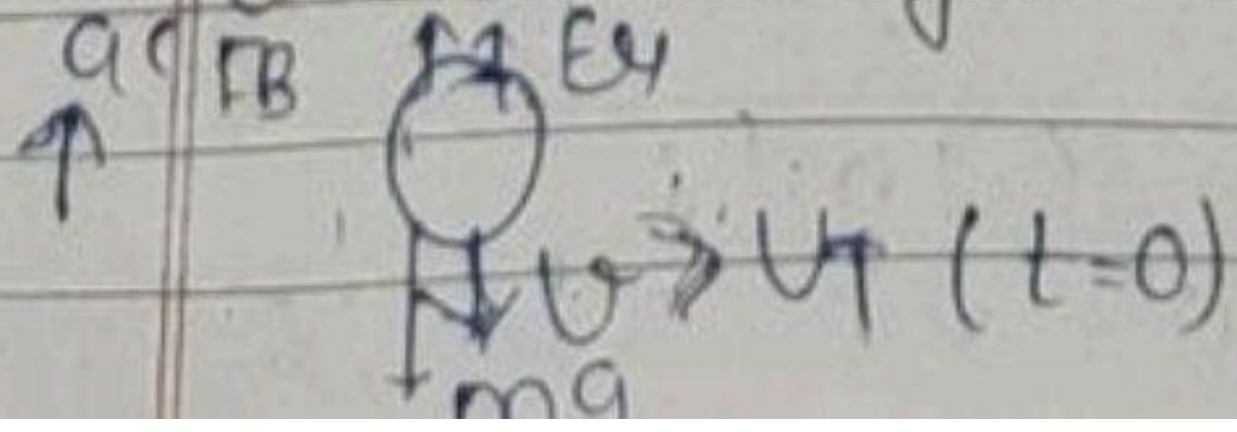 a
FB Fv
v > VT (t=0)
mg